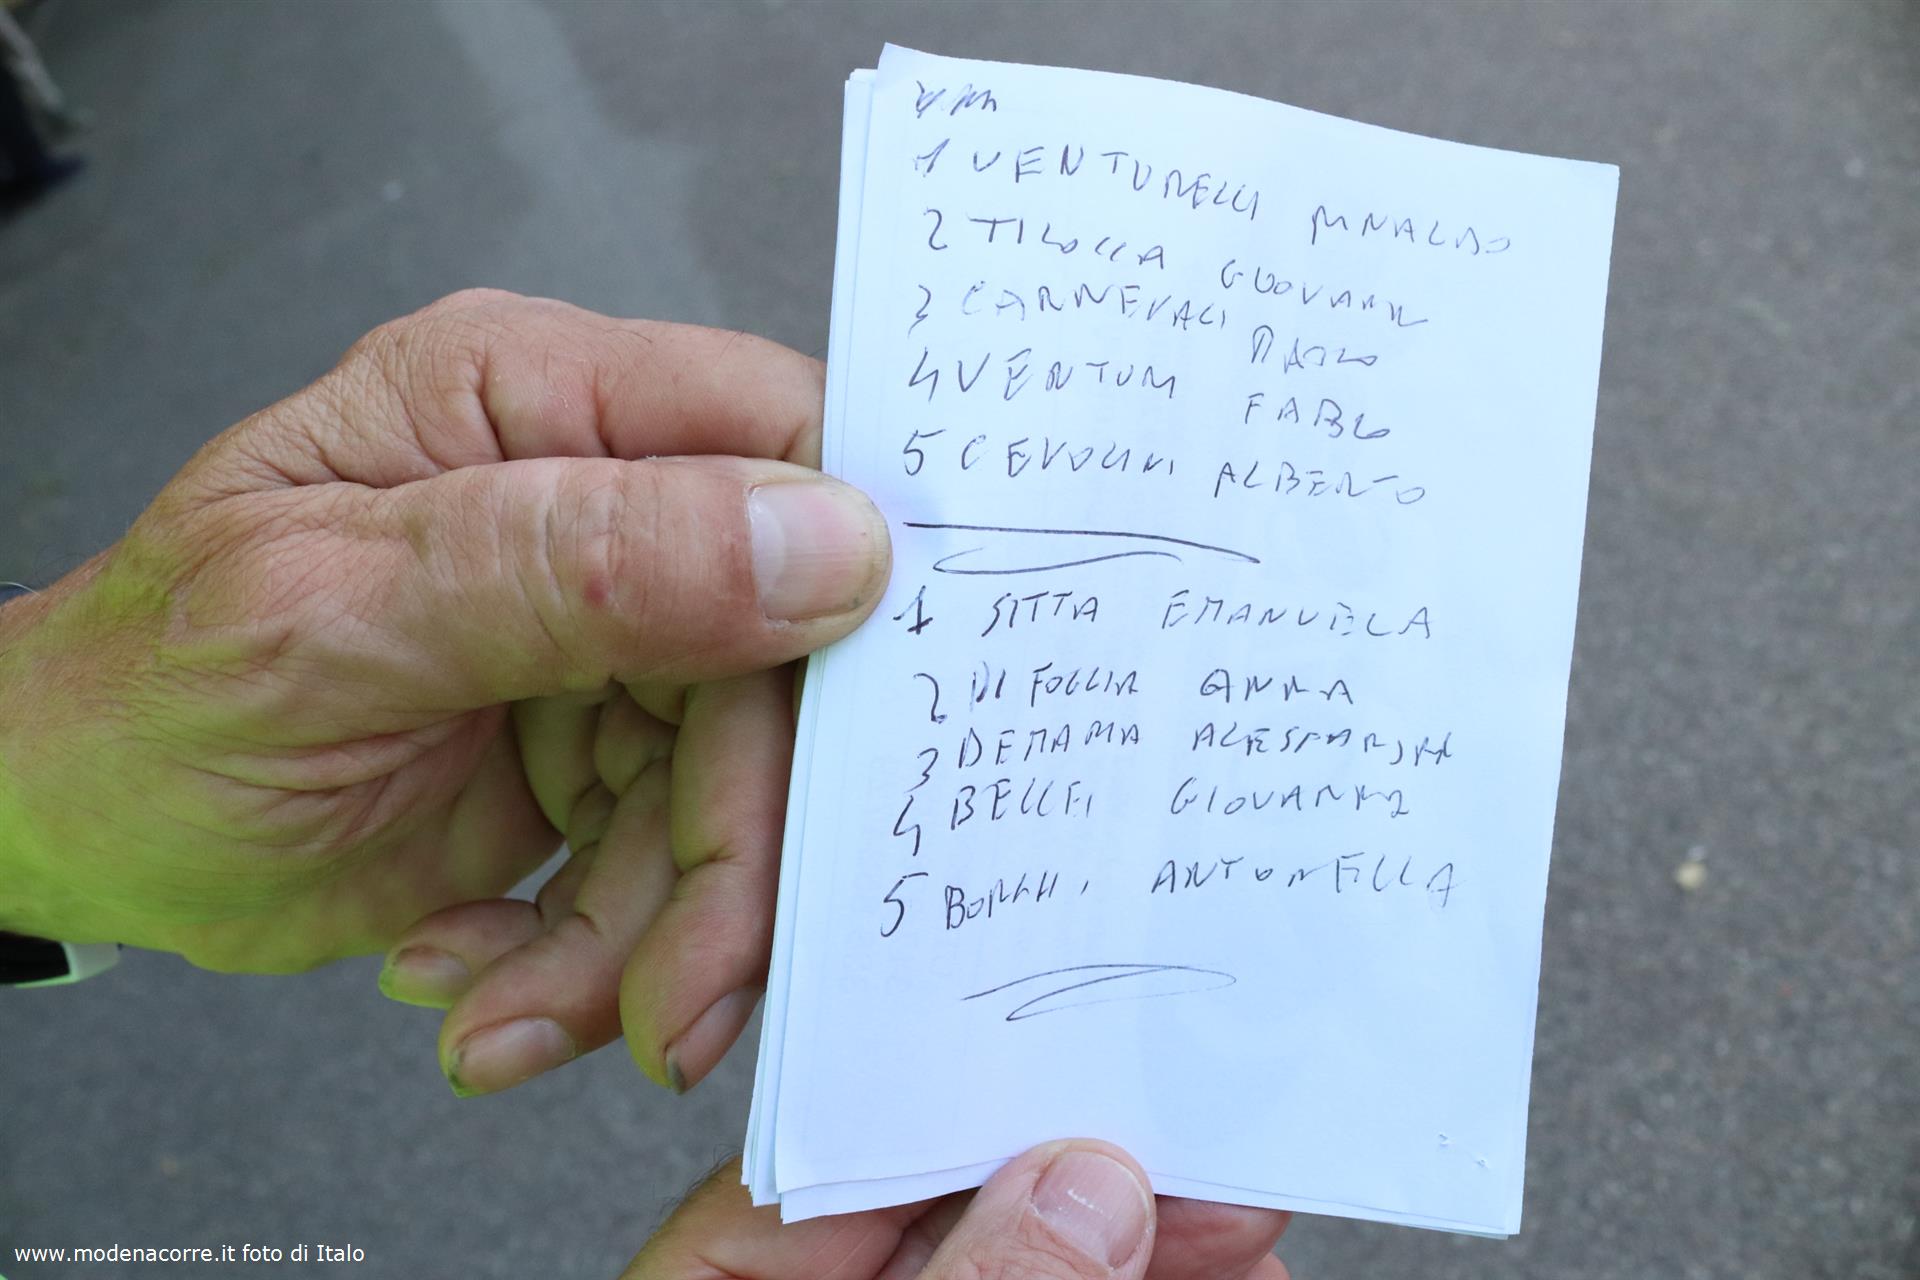 1 VENTURELLI RINALDO
2 TILOCCA GIOVANNI
3 CARNEVALI
4 VENTURI FABIO
5 CEVOLINI ALBERTO
1 SITTA EMANUELA
2 DI FOGGIA ANNA
3 DEMAMA ALESSANDRA
4 BELLEI GIOVANNA
5 BORGHI ANTONELLA
www.modenacorre.it foto di Italo